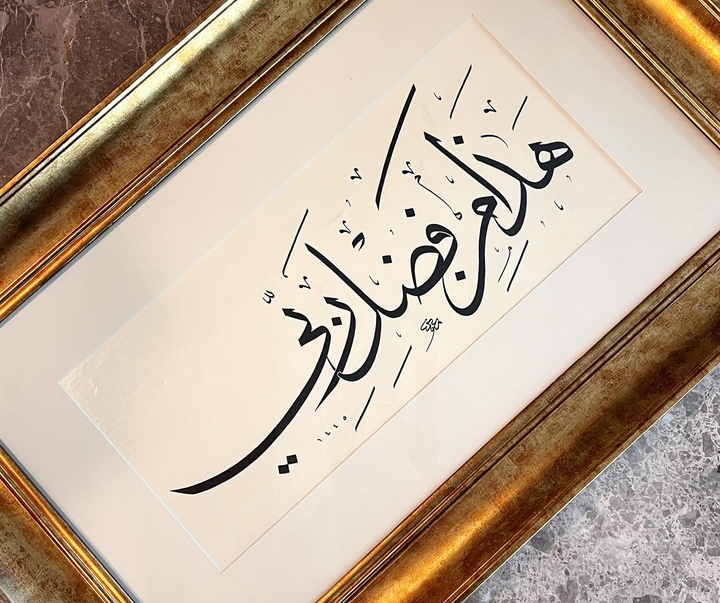 هذا من فضل ربي
١٤٤٥